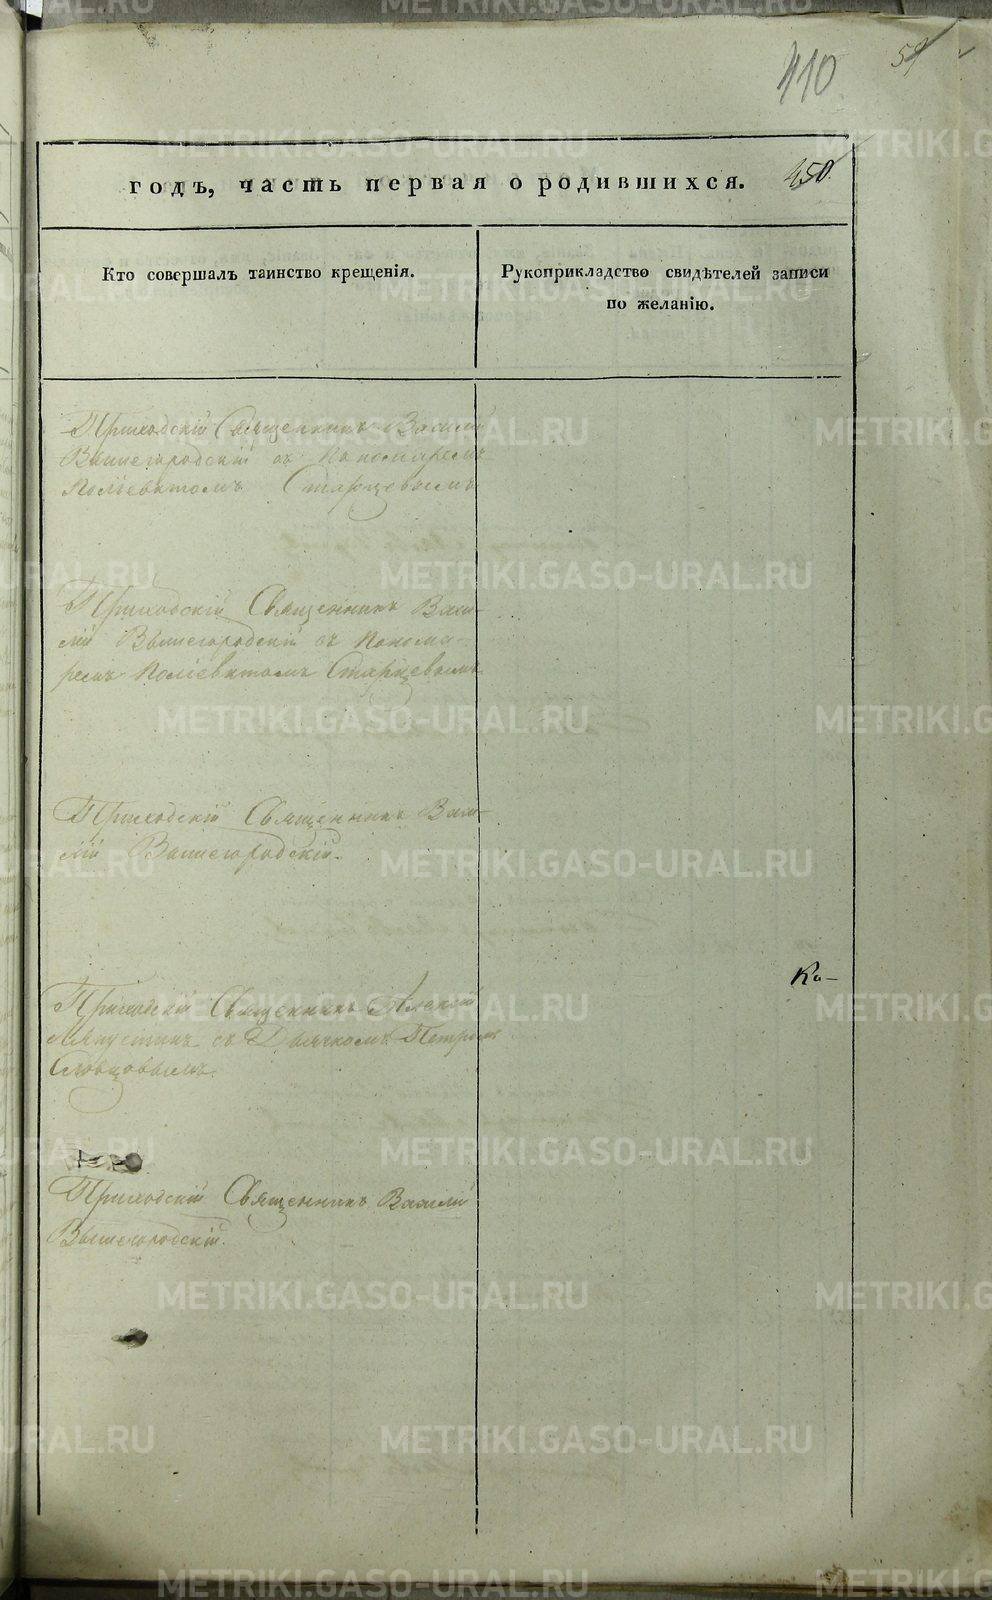 410
59
450.
годъ, часть первая о родившихся.
Кто совершалъ таинство крещенія.
Рукоприкладство свидѣтелей записи
по желанію.
Приходскій Священникъ Василій
Вышегородскій съ Пономаремъ
Поліевктомъ Старцевымъ
Приходскій Священникъ Васи-
лій Вышегородскій съ Понома-
ремъ Поліевктомъ Старцевымъ
Приходскій Священникъ Васи-
лій Вышегородскій.
Приходскій Священникъ Алексій
Ляпустинъ съ Дьячкомъ Петромъ
Словцовымъ.
Ка-
Приходскій Священникъ Василій
Вышегородскій.
METRIKI.GASO-URAL.RU